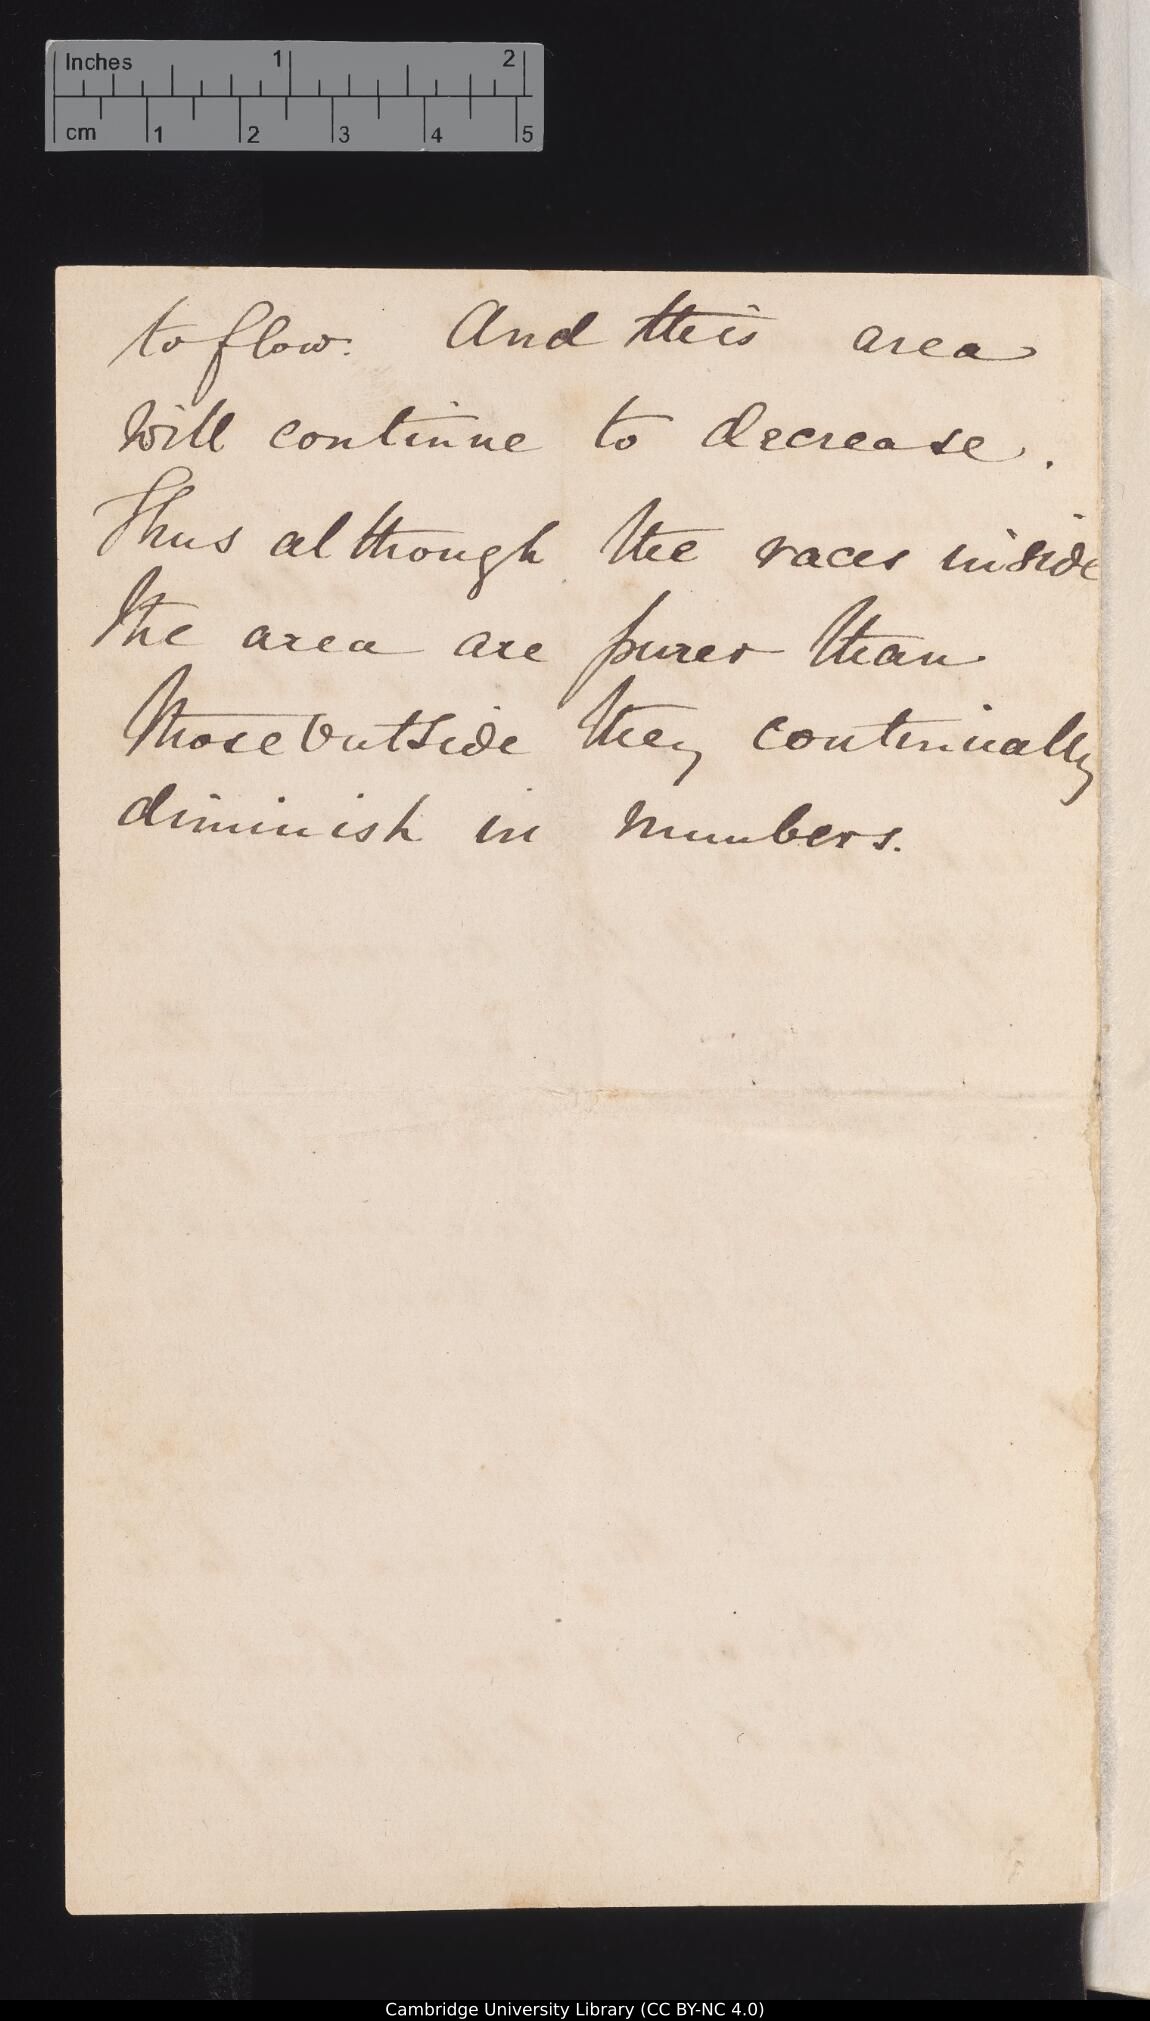 Inches 1 2
cm 1 2 3 4 5
to flow. And this area
will continue to decrease.
Thus although the races inside
the area are purer than
those outside they continually
diminish in numbers.
Cambridge University Library (CC BY-NC 4.0)